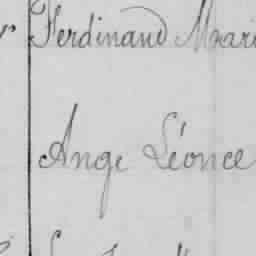 Ferdinand Mari
Ange Léonce